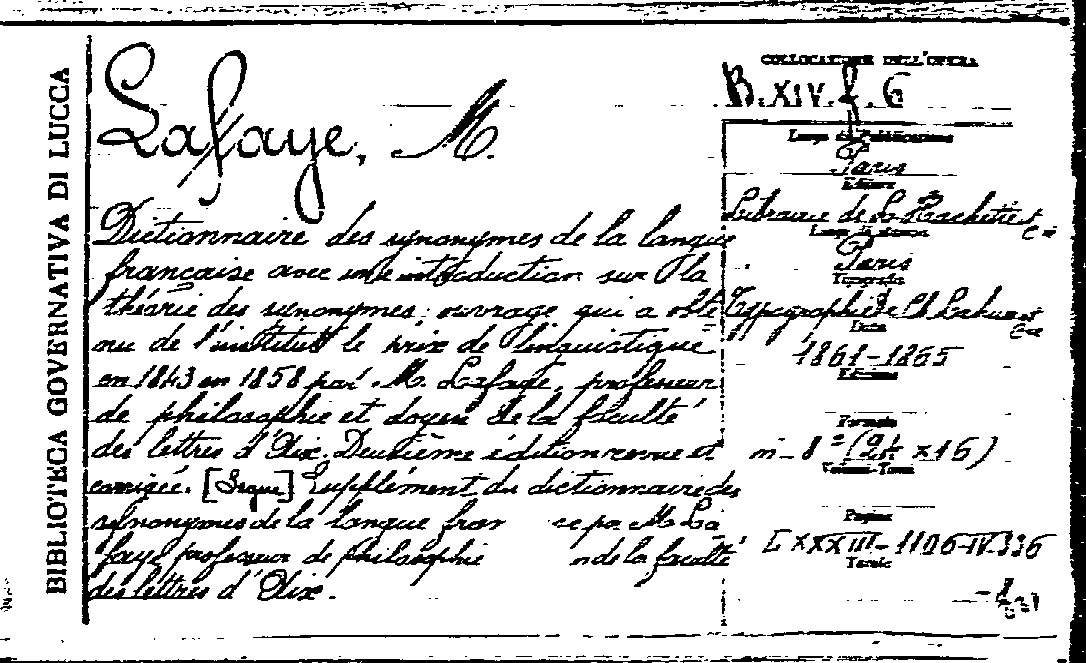 BIBLIOTECA GOVERNATIVA DI LUCCA
Lafaye, M.
Dictionnaire des synonymes de la langue
française avec une introduction sur la
théorie des synonymes; ouvrage qui a obte
nu de l'institut le prix de linguistique
en 1843 en 1858 par M. Lafaye, professeur
de philosophie et doyen de la faculté
des lettres d'Aix. Deuxième édition revue et
corrigée. [Segue] Supplément du dictionnaire des
synonymes de la langue fran se par M. La
faye professeur de philosophie n de la faculté
des lettres d'Aix.
COLLOCAZIONE DELL'OPERA
B.XIV.f.6
Luogo di Pubblicazione
Paris
Editore
Librairie de L. Hachette et C.ie
Luogo di stampa
Paris
Tipografia
Typographie de Ch. Lahure et C.ie
Data
1861-1865
Edizione
Formato
in-8° ( x16)
Volume-Tomo
Pagine
LXXXIII-1106-IV-336
Tavole